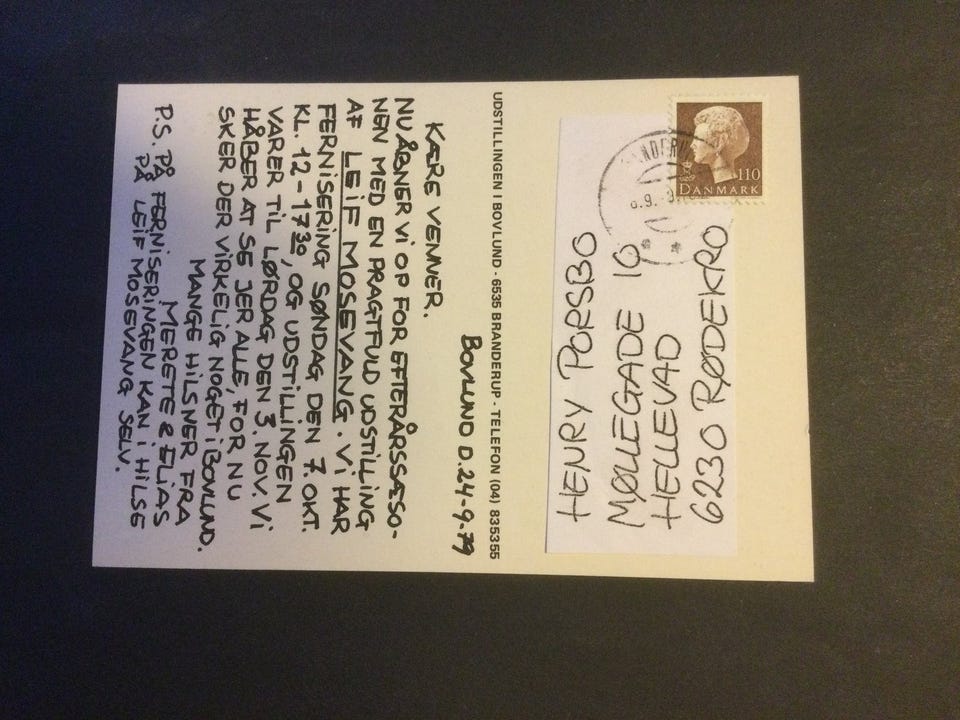 BOVLUND D. 24-9-79
KÆRE VENNER.
NU ÅBNER VI OP FOR EFTERÅRSSÆSO-
NEN MED EN PRAGTFULD UDSTILLING
AF LEIF MOSEVANG. VI HAR
FERNISERING SØNDAG DEN 7. OKT.
KL. 12-17³⁰, OG UDSTILLINGEN
VARER TIL LØRDAG DEN 3. NOV. VI
HÅBER AT SE JER ALLE, FOR NU
SKER DER VIRKELIG NOGET I BOVLUND.
MANGE HILSNER FRA
MERETE & ELIAS
P.S. PÅ FERNISERINGEN KAN I HILSE
PÅ LEIF MOSEVANG SELV.
UDSTILLINGEN I BOVLUND - 6535 BRANDERUP - TELEFON (04) 835355
110
DANMARK
HENRY PORSBO
MØLLEGADE 10
HELLEVAD
6230 RØDEKRO